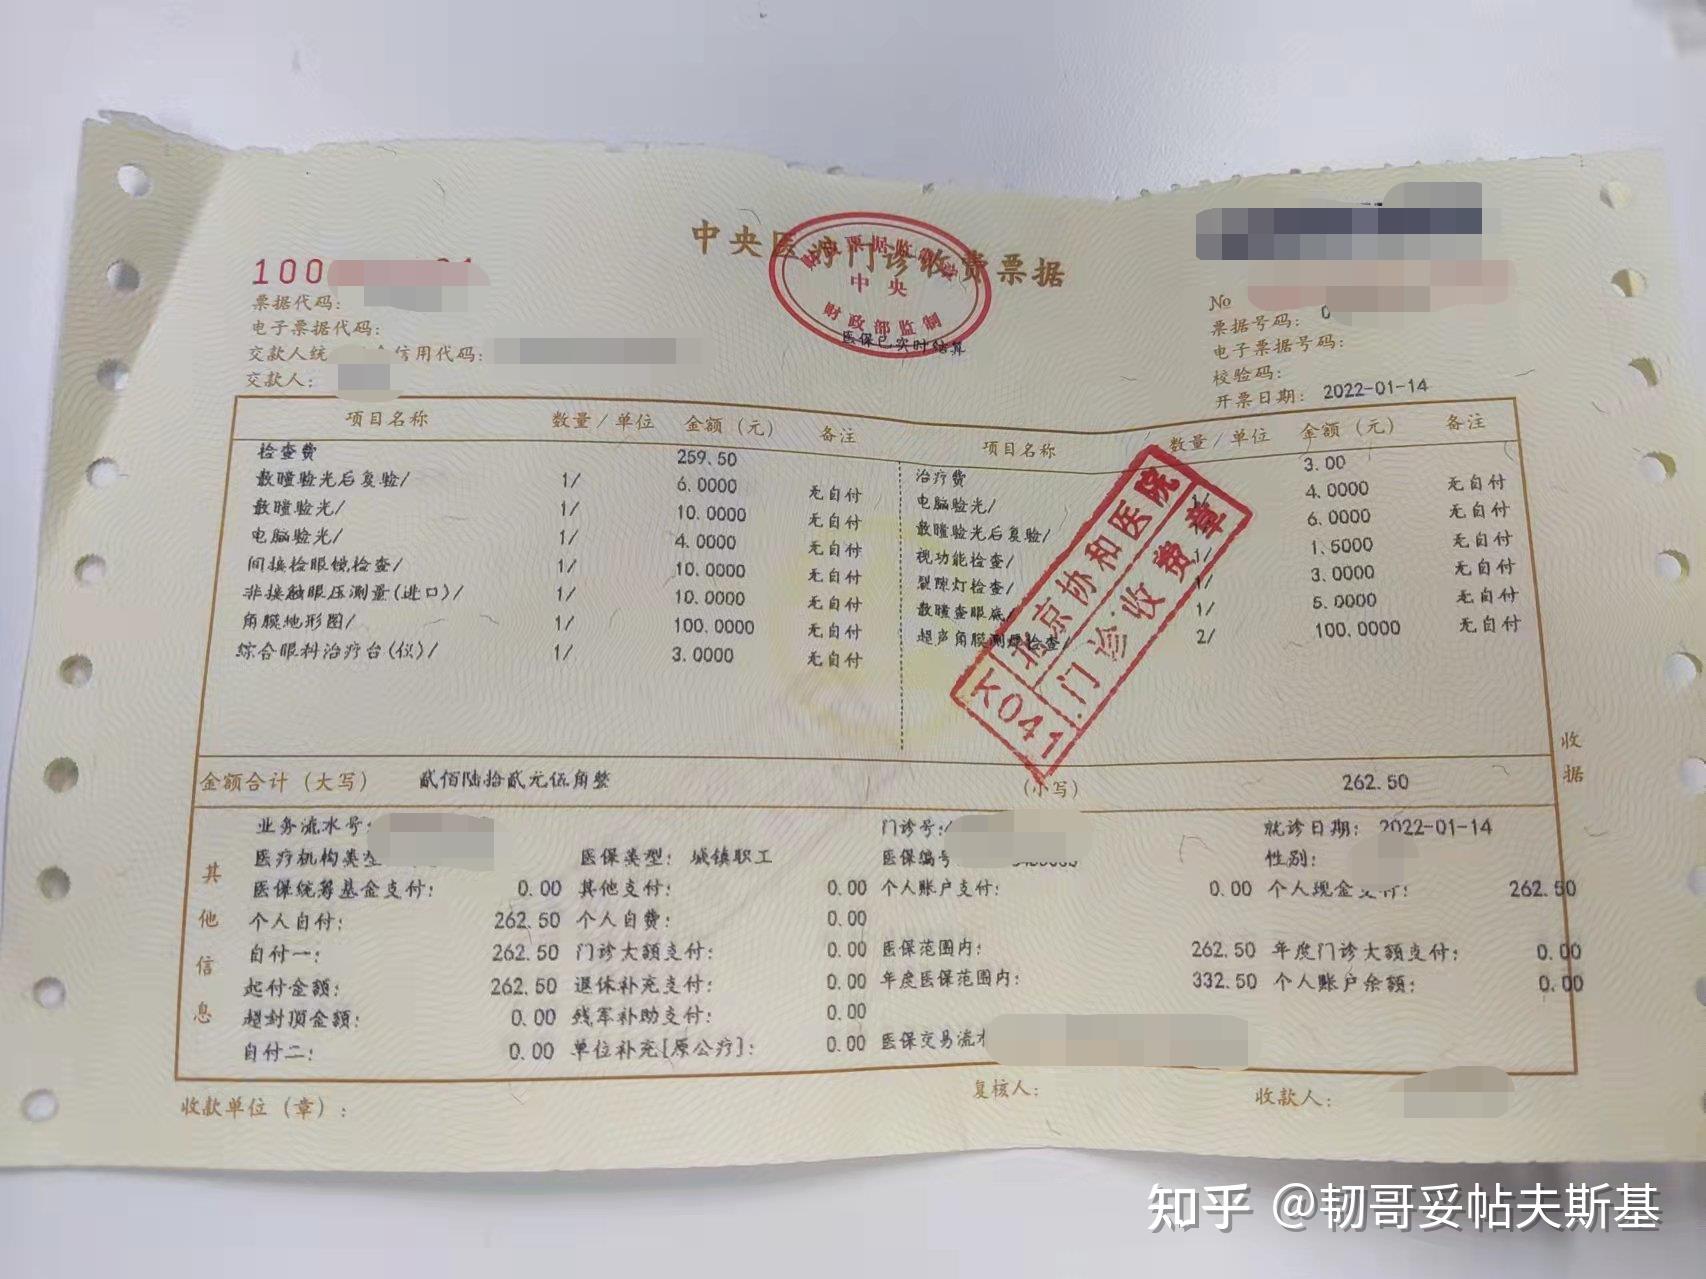 中央医疗门诊收费票据
中央
财政部监制
医保已实时结算
100
票据代码:
电子票据代码:
交款人统 信用代码:
交款人:
No
票据号码: 0
电子票据号码:
校验码:
开票日期: 2022-01-14
项目名称 数量/单位 金额(元) 备注 项目名称 数量/单位 金额(元) 备注
检查费 259.50 治疗费 3.00
散瞳验光后复验/ 1/ 6.0000 无自付 电脑验光/ 1/ 4.0000 无自付
散瞳验光/ 1/ 10.0000 无自付 散瞳验光后复验/ 6.0000 无自付
电脑验光/ 1/ 4.0000 无自付 视功能检查/ 1/ 1.5000 无自付
间接检眼镜检查/ 1/ 10.0000 无自付 裂隙灯检查/ 1/ 3.0000 无自付
非接触眼压测量(进口)/ 1/ 10.0000 无自付 散瞳查眼底/ 1/ 5.0000 无自付
角膜地形图/ 1/ 100.0000 无自付 超声角膜测厚检查/ 2/ 100.0000 无自付
综合眼科治疗台(仪)/ 1/ 3.0000 无自付
北京协和医院
门诊收费章
K041
收据
金额合计(大写) 贰佰陆拾贰元伍角整 (小写) 262.50
其他信息
业务流水号: 门诊号: 就诊日期: 2022-01-14
医疗机构类型 医保类型: 城镇职工 医保编号 性别:
医保统筹基金支付: 0.00 其他支付: 0.00 个人账户支付: 0.00 个人现金支付: 262.50
个人自付: 262.50 个人自费: 0.00
自付一: 262.50 门诊大额支付: 0.00 医保范围内: 262.50 年度门诊大额支付: 0.00
起付金额: 262.50 退休补充支付: 0.00 年度医保范围内: 332.50 个人账户余额: 0.00
超封顶金额: 0.00 残军补助支付: 0.00
自付二: 0.00 单位补充[原公疗]: 0.00 医保交易流水
收款单位(章): 复核人: 收款人:
知乎 @韧哥妥帖夫斯基